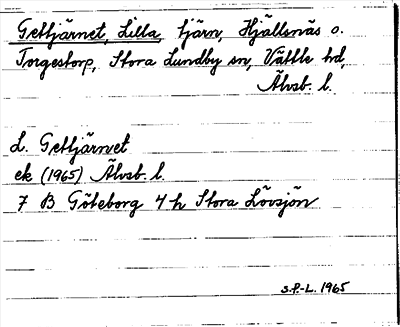 Gettjärnet, Lilla, tjärn, Hjällsnäs o.
Torgestorp, Stora Lundby sn, Vättle hd,
Älvsb. l.
L. Gettjärnet
ek (1965) Älvsb. l.
7 B Göteborg 4 h Stora Lövsjön
S.P.-L. 1965